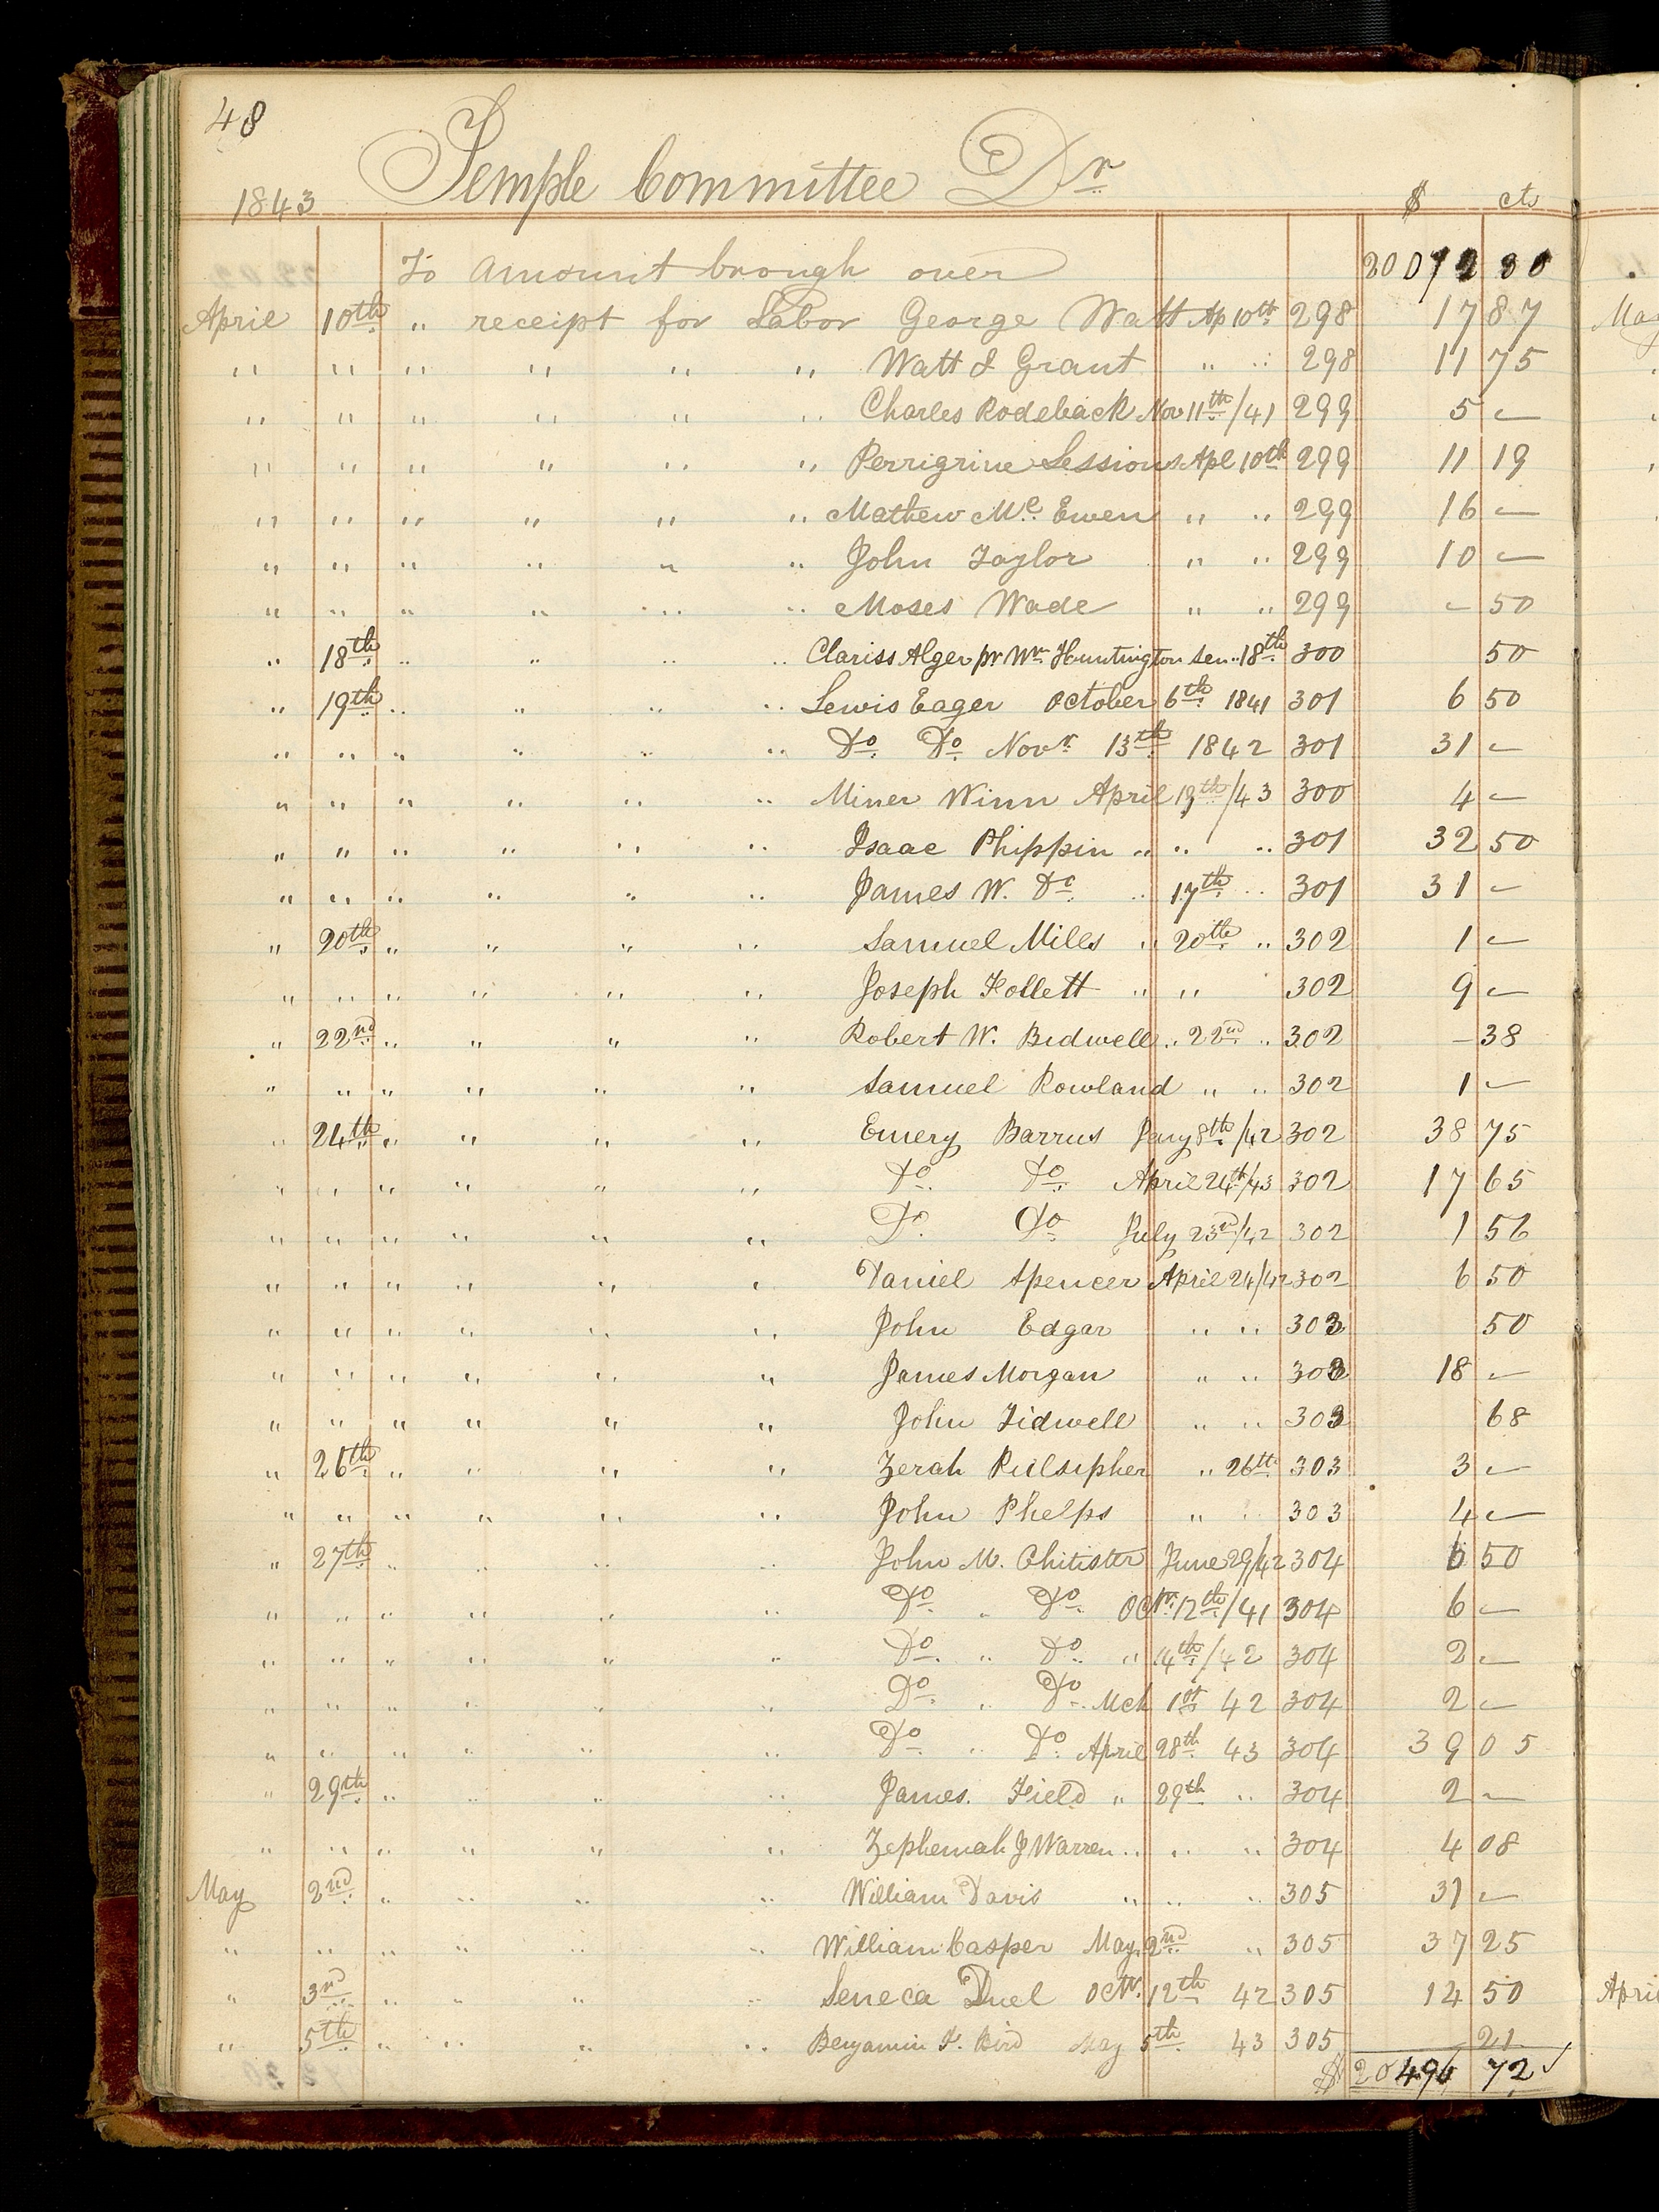 48
Temple Committee Dr
1843 $ cts
To Amount brough over 20072 30
April 10th " receipt for Labor George Watt Ap 10th 298 17 87
" " " " " " Watt & Grant " " 298 11 75
" " " " " " Charles Rodeback Nov 11th /41 299 5 —
" " " " " " Perrigrine Sessions Apl 10th 299 11 19
" " " " " " Mathew Mc Ewen " " 299 16 —
" " " " " " John Taylor " " 299 10 —
" " " " " " Moses Wade " " 299 — 50
" 18th " " " " Clariss Alger pr Wm Huntington Sen " 18th 300 50
" 19th " " " " Lewis Eager October 6th 1841 301 6 50
" " " " " " Do Do Novr 13th 1842 301 31 —
" " " " " " Miner Winn April 19th /43 300 4 —
" " " " " " Isaac Phippin " " " 301 32 50
" " " " " " James W. Do " 17th " 301 31 —
" 20th " " " " Samuel Miles " 20th " 302 1 —
" " " " " " Joseph Follett " " 302 9 —
" 22nd " " " " Robert W. Bidwell " 22nd " 302 — 38
" " " " " " Samuel Rowland " " 302 1 —
" 24th " " " " Emery Barrus Jany 8th /42 302 38 75
" " " " " " Do Do April 24th /43 302 17 65
" " " " " " Do Do July 23rd /42 302 1 56
" " " " " " Daniel Spencer April 24/42 302 6 50
" " " " " " John Edgar " " 303 50
" " " " " " James Morgan " " 303 18 —
" " " " " " John Tidwell " " 303 68
" 26th " " " " Zerah Pulsipher " 26th 303 3 —
" " " " " " John Phelps " " 303 4 —
" 27th " " " " John M. Chitister June 29/42 304 6 50
" " " " " " Do " Do Octr 12th /41 304 6 —
" " " " " " Do " Do " 14th /42 304 2 —
" " " " " " Do " Do Mch 1st 42 304 2 —
" " " " " " Do " Do April 28th 43 304 39 05
" 29th " " " " James. Field " 29th " 304 2 —
" " " " " " Zephemah J Warren " " " 304 4 08
May 2nd " " " " William Davis " " " 305 31 —
" " " " " " William Casper May 2nd " 305 37 25
" 3rd " " " " Seneca Duel Octr 12th 42 305 14 50
" 5th " " " " Benjamin F. Bird May 5th 43 305 — 21
$ 20496 72 ✓